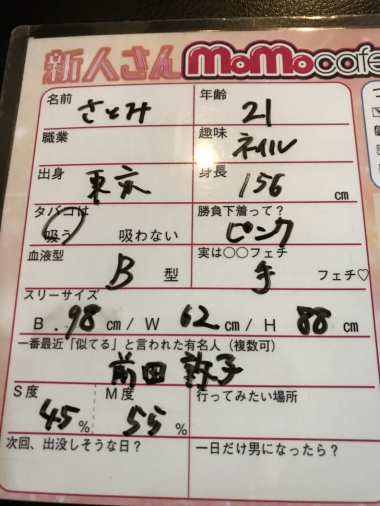 新人さん MoMo cafe
名前 さとみ 年齢 21
職業 趣味 ネイル
出身 東京 身長 156 cm
タバコは 吸う 吸わない 勝負下着って？ ピンク
血液型 B 型 実は○○フェチ 手 フェチ♡
スリーサイズ
B. 98 cm / W 62 cm / H 88 cm
一番最近「似てる」と言われた有名人（複数可）
前田 敦子
S度 45 % M度 55 % 行ってみたい場所
次回、出没しそうな日？ 一日だけ男になったら？